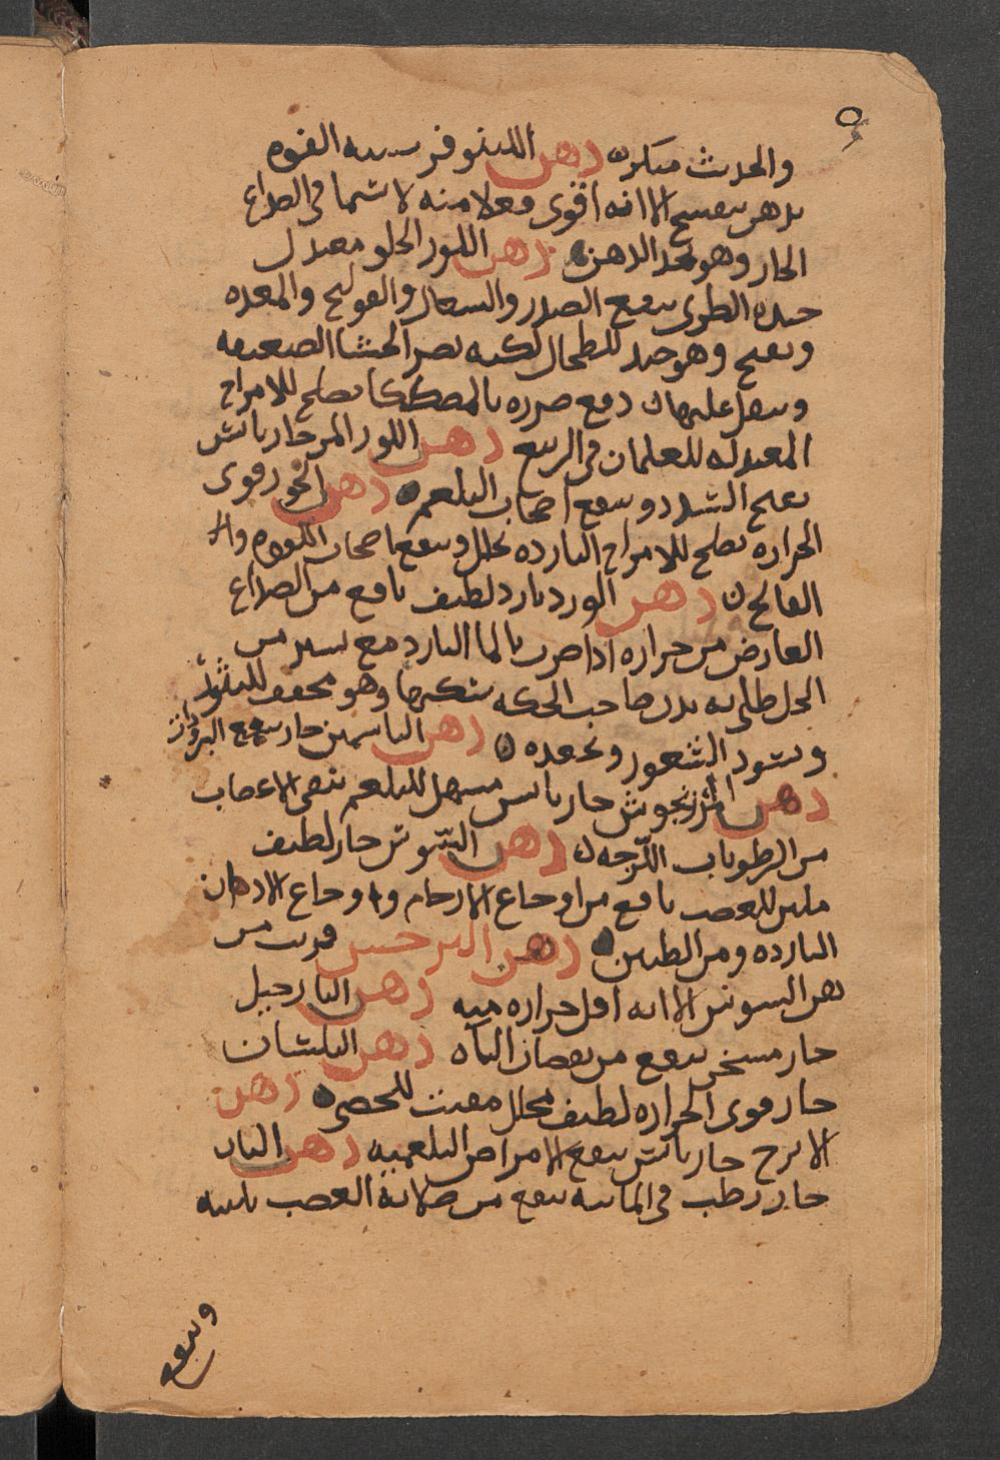 والحدث منكره دهن اللينوفر شبيه القوه
بدهن بنفسج الا انه اقوى فعلا منه لا سيما في الصداع
الحار وهو نحد الدهن دهن اللوز الحلو معتدل
جيده الطرى ينفع الصدر والسعال والقولنج والمعده
ويفتح وهو جيد للطحال لكنه يضر الحشا الضعيفه
ويثقل عليها دفع ضرره بالمصطكا يصلح للامزاج
المعتدله للغلمان في الربيع دهن اللوز المر حار يابس
يفتح السدد وينفع اصحاب البلغم دهن الجوز قوى
الحراره يصلح للامزاج البارده يحلل وينفع اصحاب اللقوه وا
الفالج دهن الورد بارد لطيف نافع من الصداع
العارض من حراره اذا ضرب بالما البارد مع يسير من
الخل طلى به بدن صاحب الحكه سكنها وهو مجفف للبثور
ويسود الشعور ويجعده دهن الياسمين حار ينفع البرودات
دهن المرزنجوش حار يابس مسهل للبلغم ينقى الاعصاب
من الرطوبات اللزجه دهن السوسن حار لطيف
ملين للعصب نافع من اوجاع الارحام واوجاع الاذهان
البارده ومن الطنين دهن النرجس قريب من
دهن السوسن الا انه اقل حراره فيه دهن النارجيل
حار مسخن ينفع من نقصان الباه دهن البلسان
حار قوى الحراره لطيف محلل مفتت للحصى دهن
الاترج حار يابس ينفع الامراض البلغميه دهن البان
حار رطب في الثانيه ينفع من صلابة العصب يلينه
وينفع